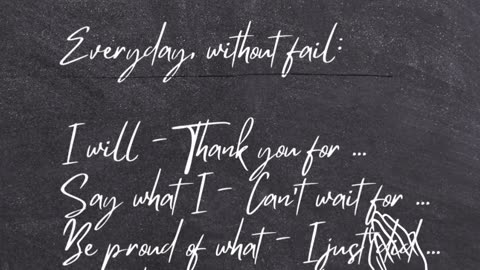 Everyday, without fail:
I will - Thank you for ...
Say what I - Can't wait for ...
Be proud of what - I just did ...